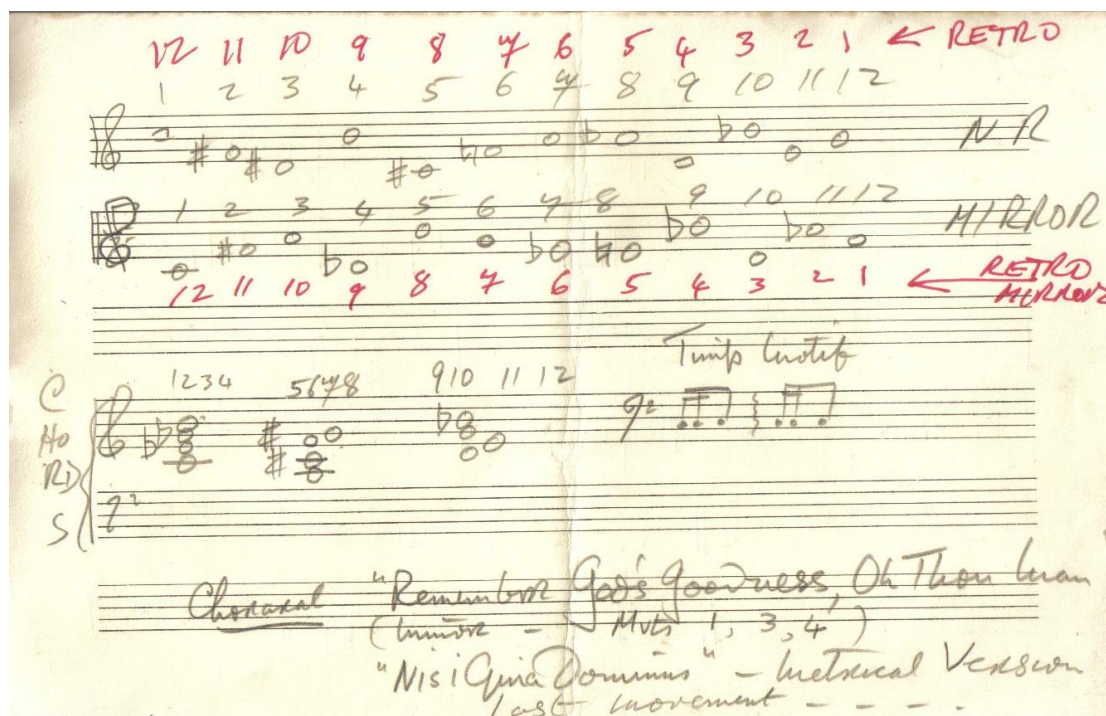 12 11 10 9 8 7 6 5 4 3 2 1 ← RETRO
1 2 3 4 5 6 7 8 9 10 11 12
N R
1 2 3 4 5 6 7 8 9 10 11 12 MIRROR
12 11 10 9 8 7 6 5 4 3 2 1 ← RETRO MIRROR
Timp Motif
CHORDS 1234 5678 910 11 12
Choraral "Remember God's Goodness, Oh Thou Man
(Minor - Mvts 1, 3, 4)
"Nisi Quia Dominus" - Metrical Version
last movement - - - -